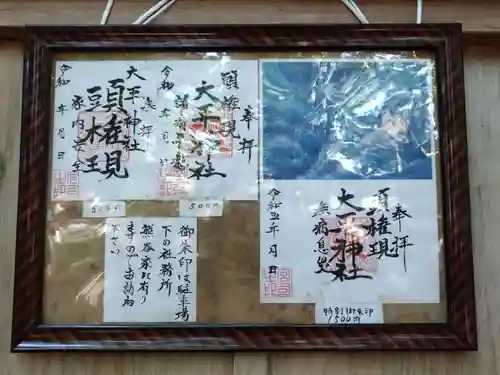 奉拝
頭権現
大平神社
無病息災
令和五年 月 日
特別御朱印
1500円
奉拝
頭権現
大平神社
令和 年 月 日
500円
奉拝
大平神社
頭権現
家内安全
令和 年 月 日
500円
御朱印は駐車場
下の社務所
熊谷家に有り
ますのでお訪ね
下さい